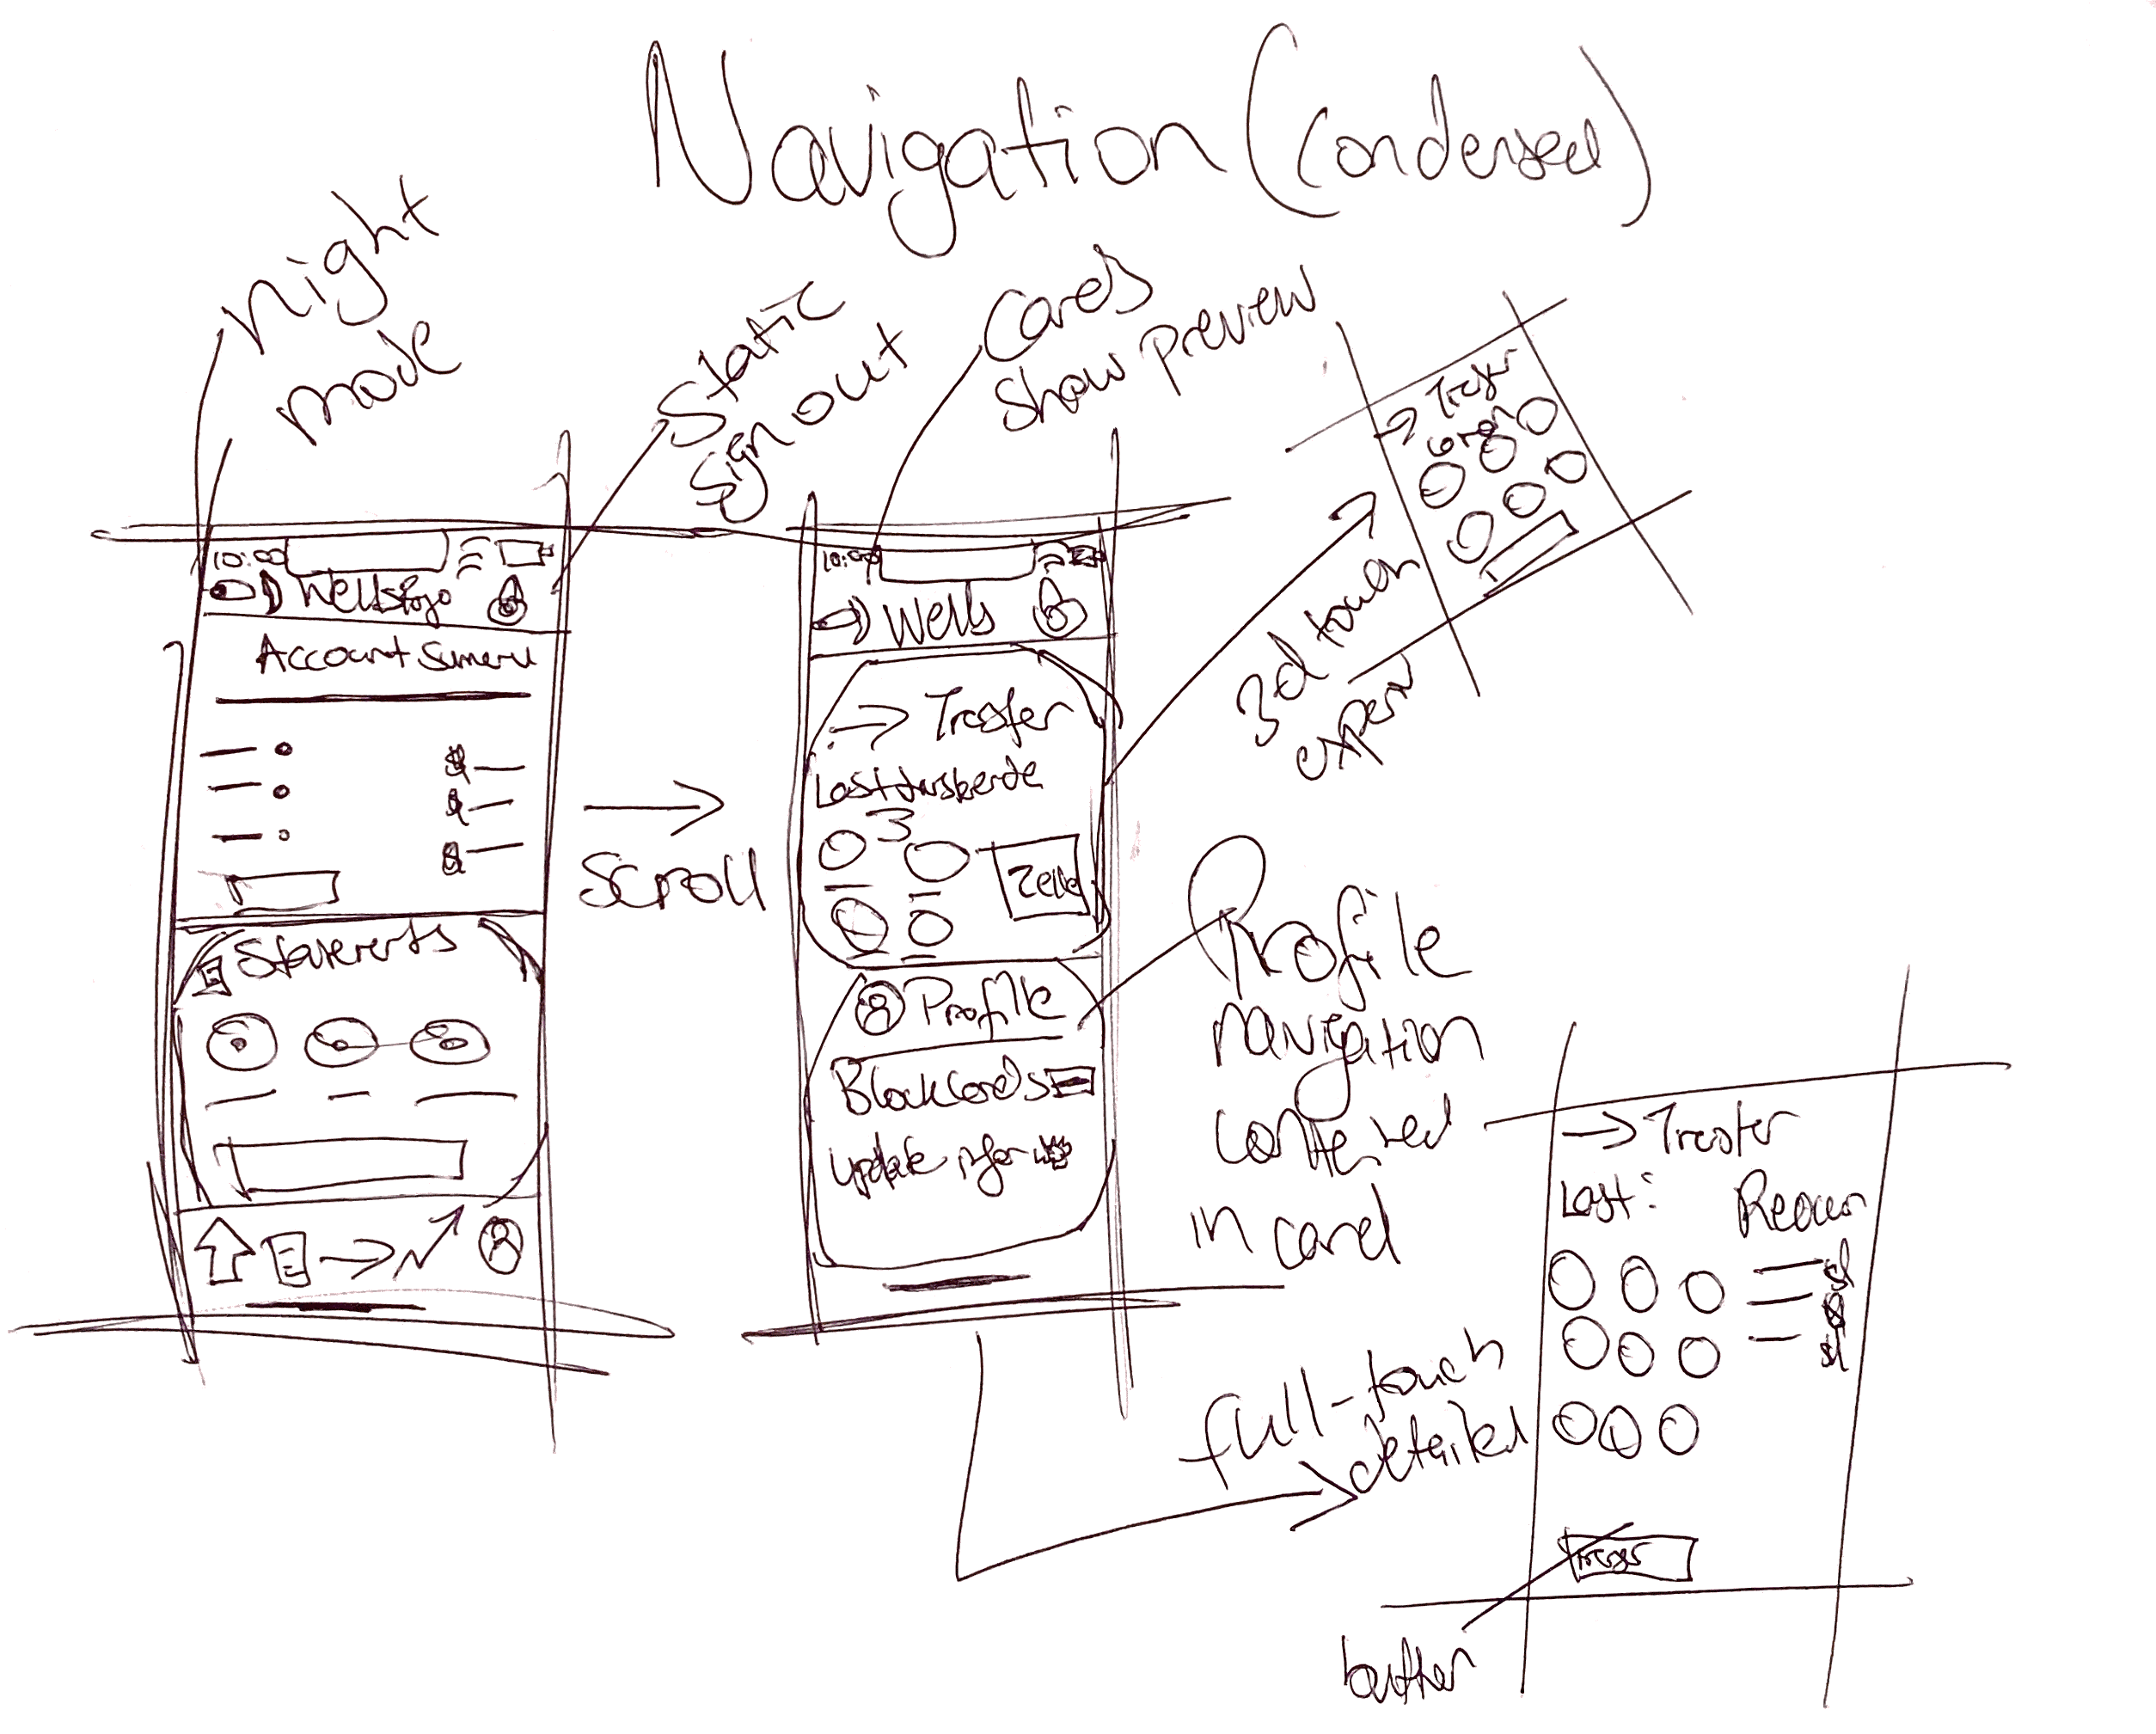 Navigation (Condensed)
Night
mode
Static
sign out
Cards
show preview
10:00
Wellsfargo
Account Sumery
$
$
$
Statements
Scroll
10:00
Wells
Trasfer
3
Zelle
Profile
Block Cards
Update infor
3d touch
expand
Profile
navigation
contained
in card
full-touch
detailed
Trasfer
Last:
Recurr
$
$
$
button